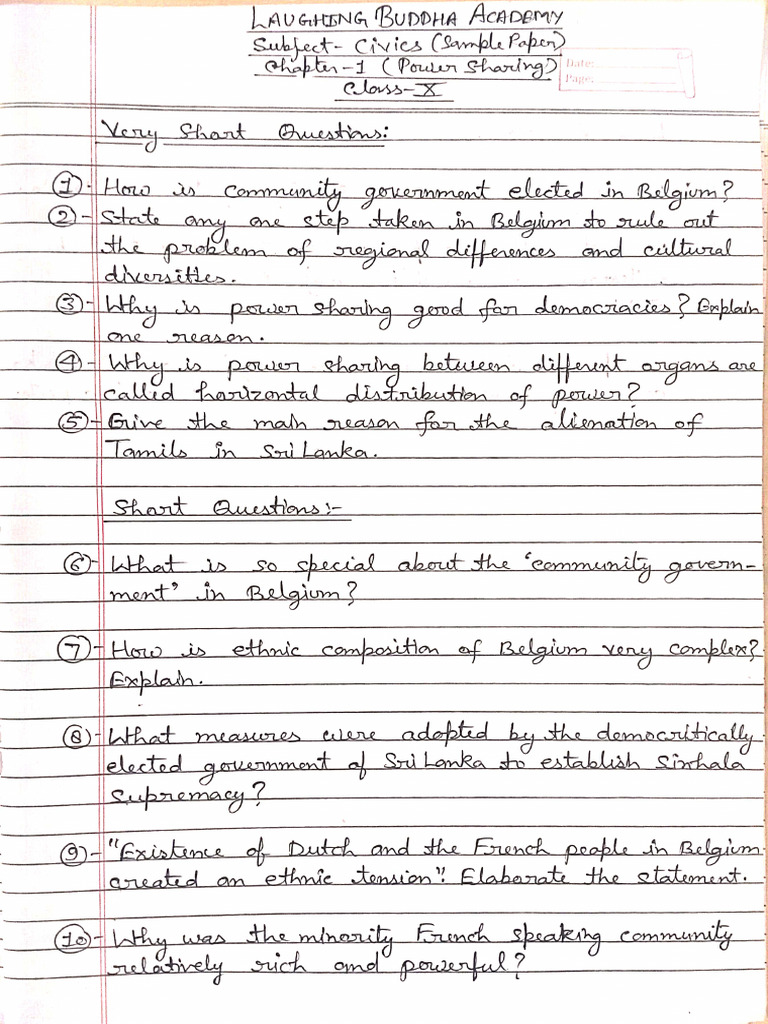 LAUGHING BUDDHA ACADEMY
Subject- Civics (Sample Paper)
Chapter-1 (Power Sharing)
Class-X
Date:
Page:
Very Short Questions:
①· How is community government elected in Belgium?
②- State any one step taken in Belgium to rule out
the problem of regional differences and cultural
diversities.
③- Why is power sharing good for democracies? Explain
one reason.
④- Why is power sharing between different organs are
called horizontal distribution of power?
⑤- Give the main reason for the alienation of
Tamils in Sri Lanka.
Short Questions:-
⑥- What is so special about the 'community govern-
ment' in Belgium?
⑦- How is ethnic composition of Belgium very complex?
Explain.
⑧- What measures were adopted by the democritically
elected government of Sri Lanka to establish Sinhala
Supremacy?
⑨- "Existence of Dutch and the French people in Belgium
created an ethnic tension". Elaborate the statement.
⑩- Why was the minority French speaking community
relatively rich and powerful?